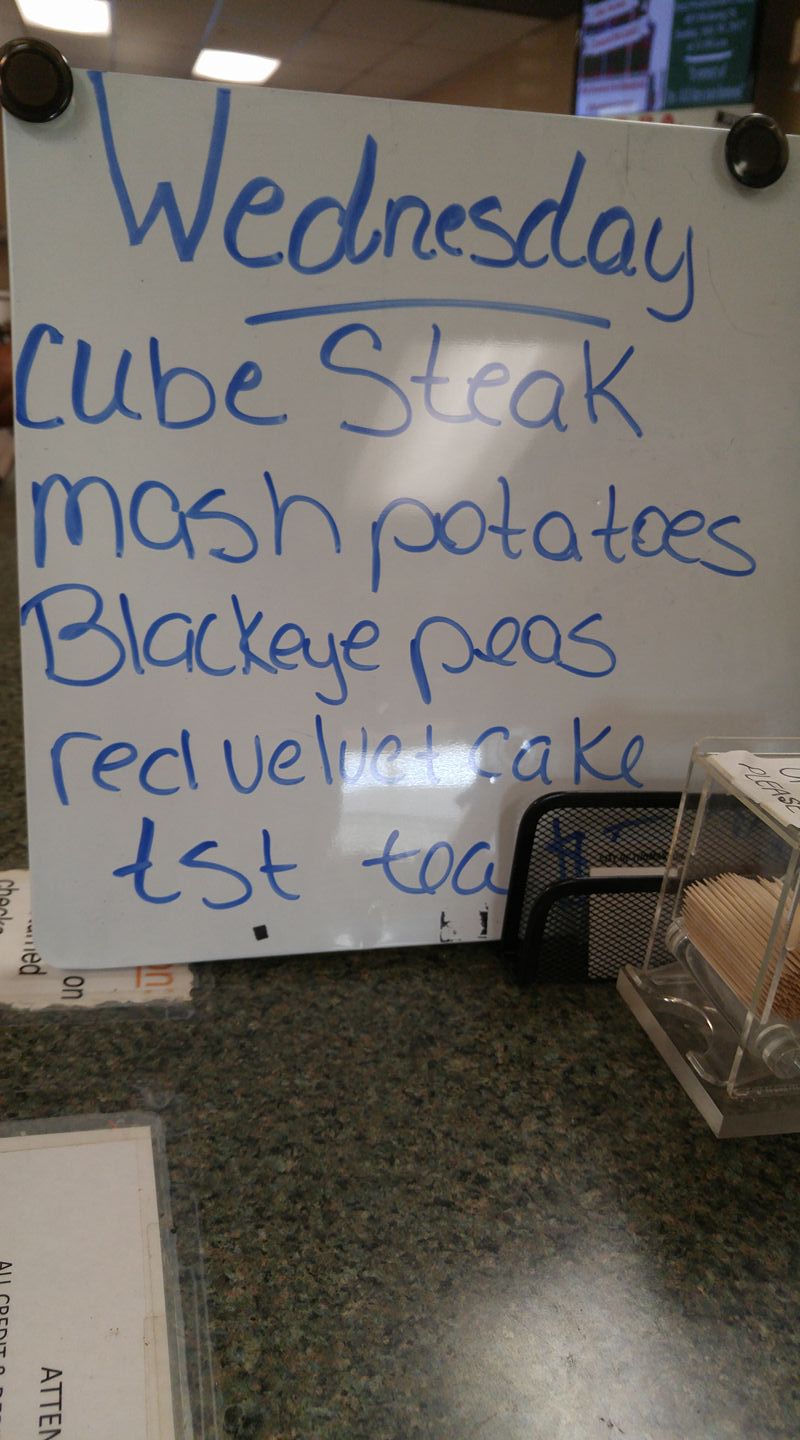 Wednesday
Cube Steak
mash potatoes
Blackeye peas
red velvet cake
tst tea
PLEASE
checks
on
ATTEN